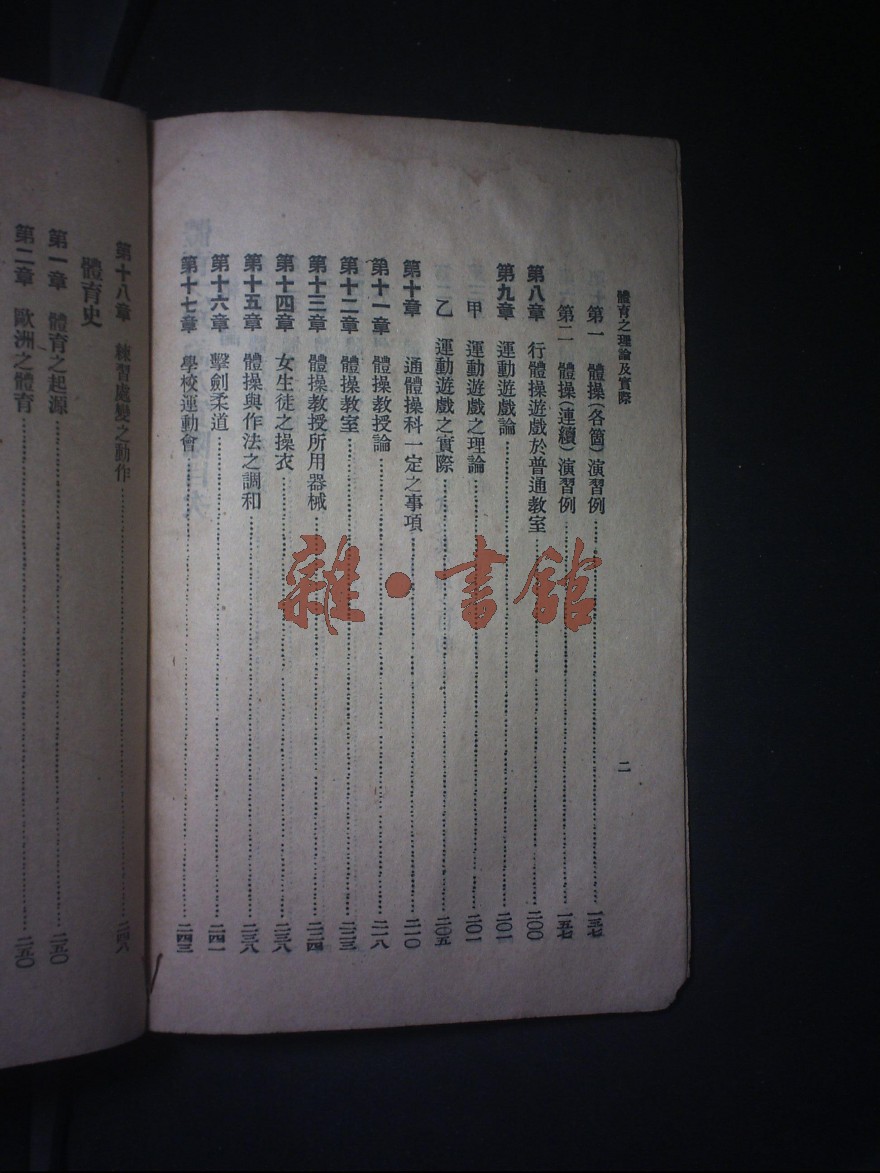 體育之理論及實際
二
第一 體操(各箇)演習例……一三七
第二 體操(連續)演習例……一五七
第八章 行體操遊戲於普通教室……二〇〇
第九章 運動遊戲論……二〇一
甲 運動遊戲之理論……二〇一
乙 運動遊戲之實際……二〇五
第十章 通體操科一定之事項……二一〇
第十一章 體操教授論……二一八
第十二章 體操教室……二二三
第十三章 體操教授所用器械……二二四
第十四章 女生徒之操衣……二三八
第十五章 體操與作法之調和……二三八
第十六章 擊劍柔道……二四一
第十七章 學校運動會……二四三
第十八章 練習處變之動作……二四八
體育史
第一章 體育之起源……二五〇
第二章 歐洲之體育……二五〇
雜·書館